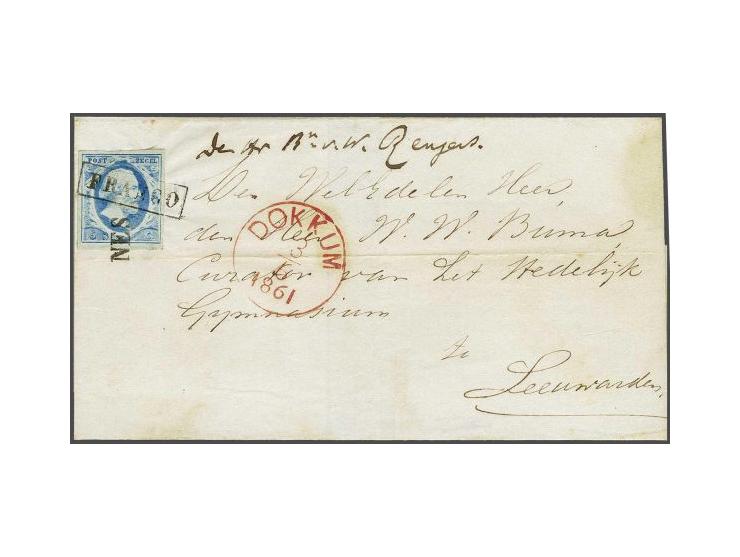 den Hr Bn v. W. Rengers.
POST ZEGEL
FRANCO
NES
DOKKUM
1861
Den WelEdelen Heer,
den Heer W. W. Buma,
Curator van het Stedelijk
Gymnasium
te
Leeuwarden,